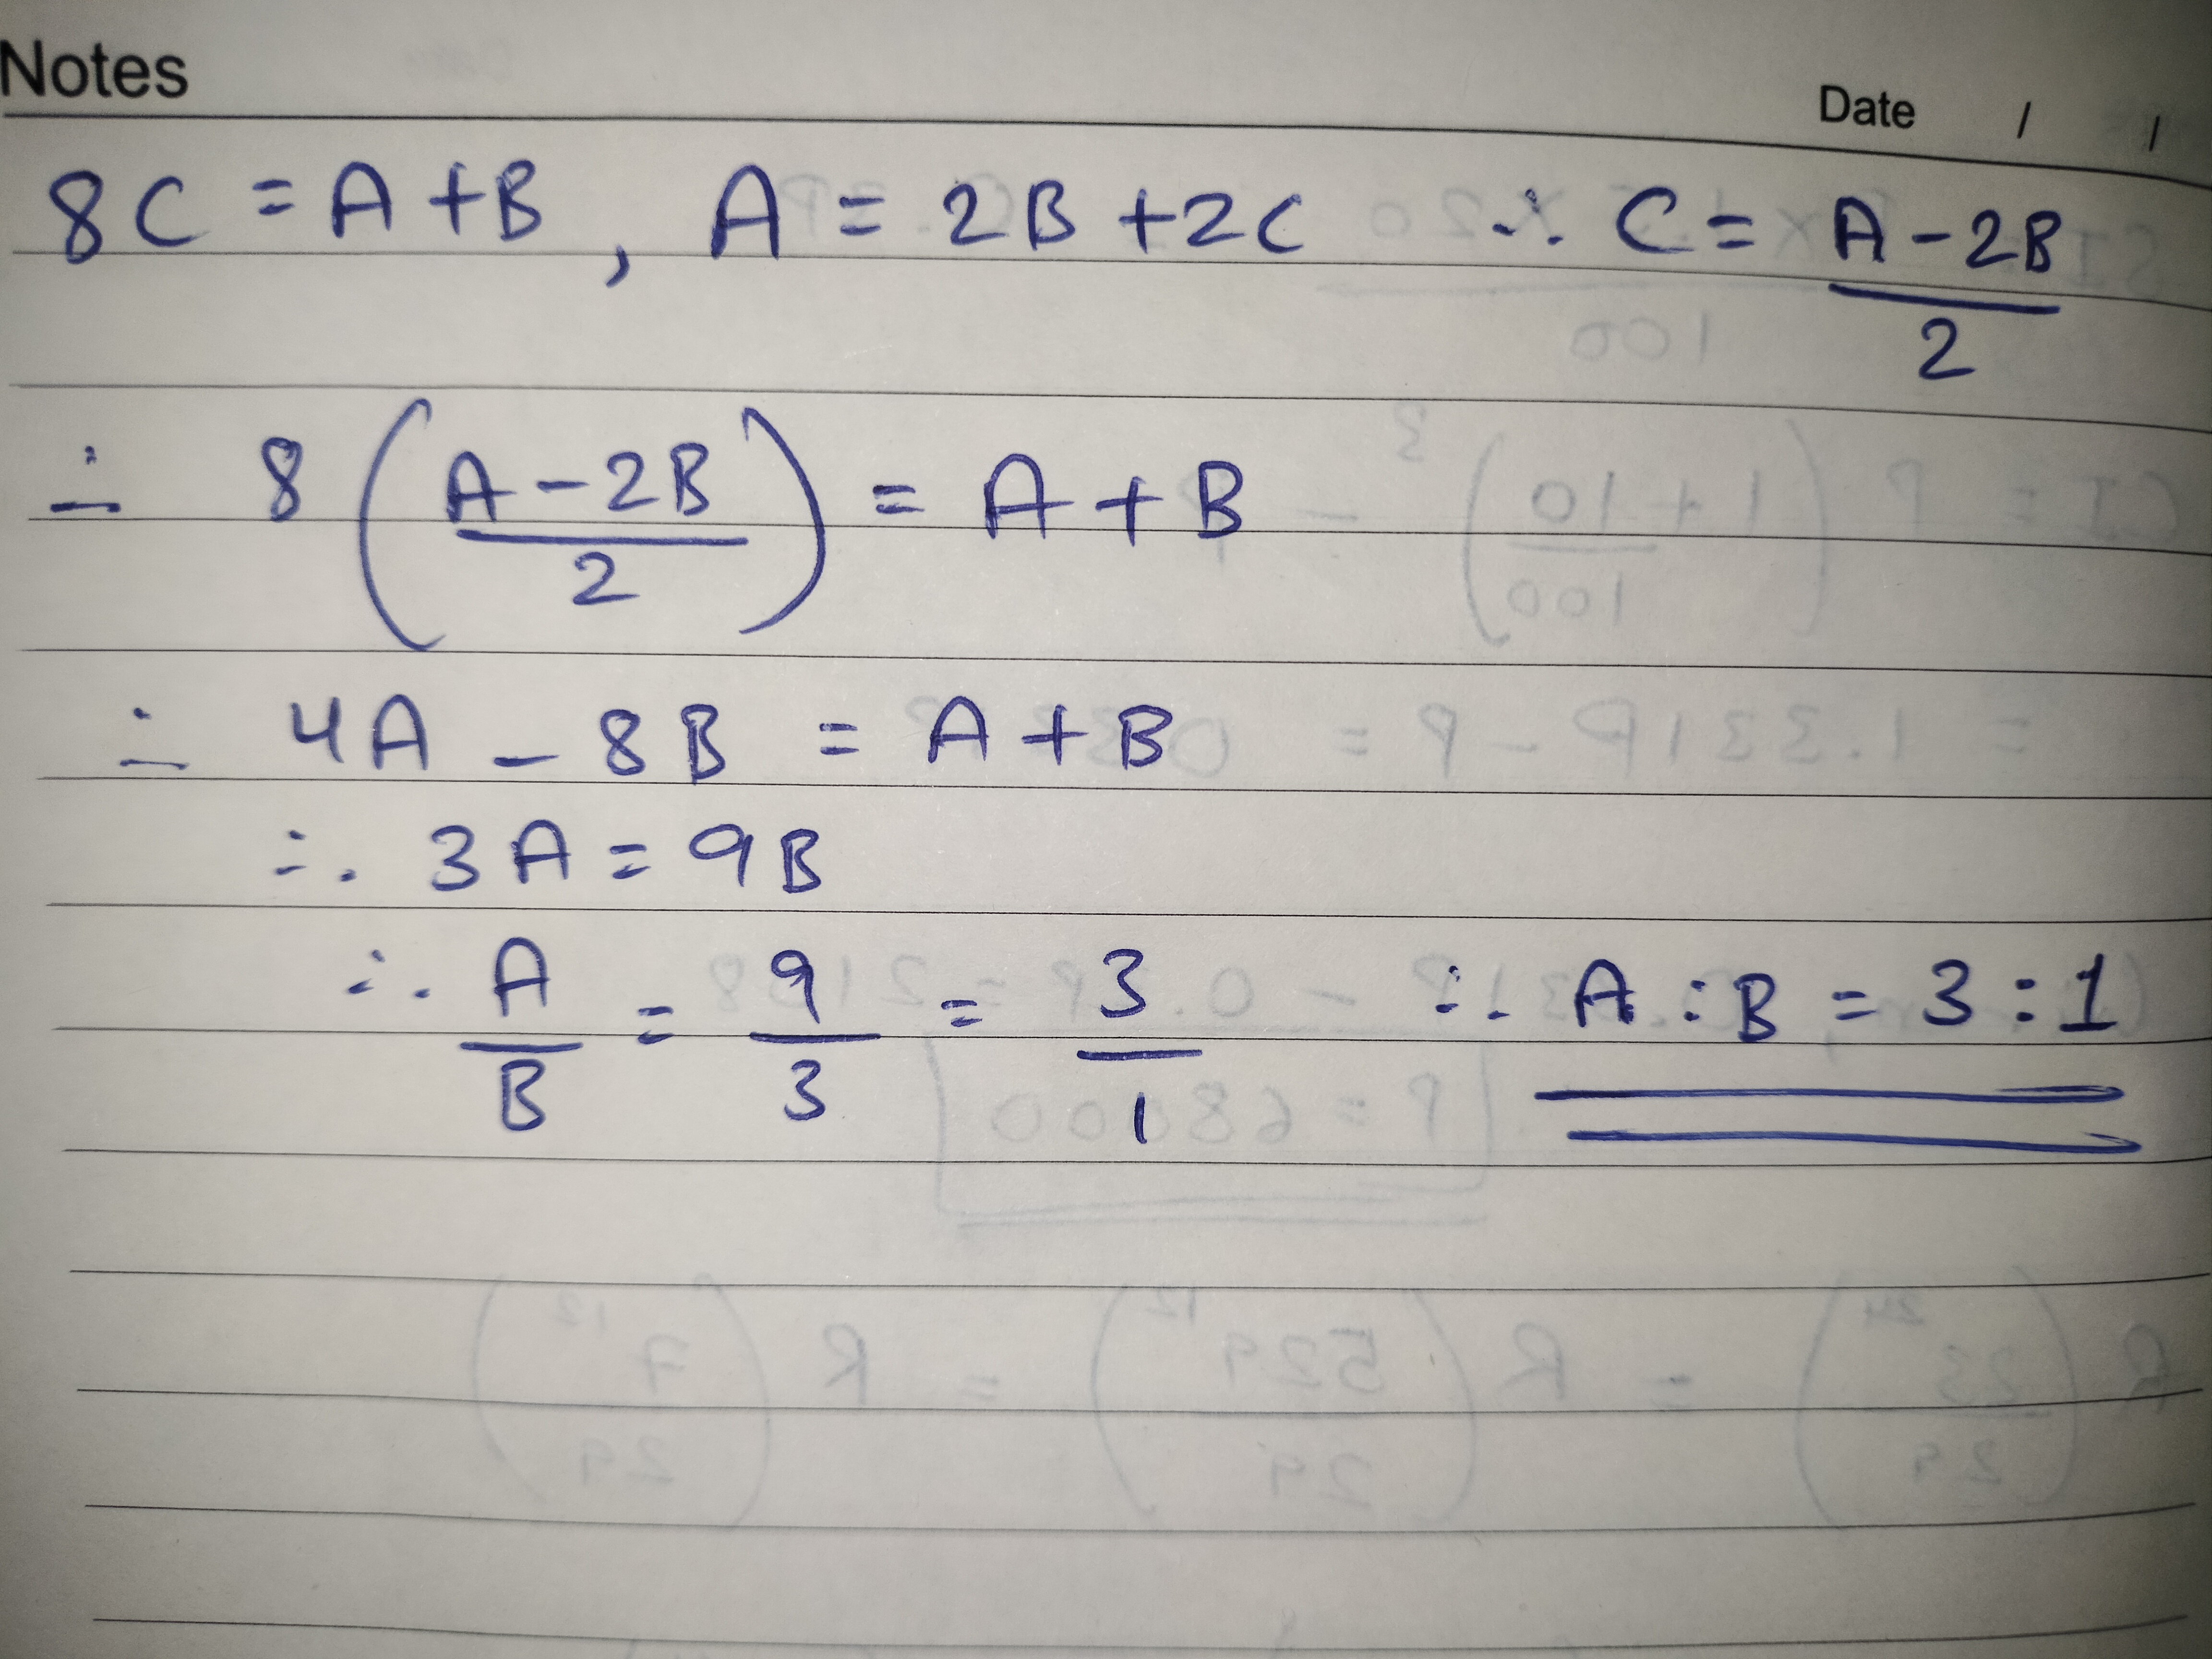 Notes
Date / /
8C = A + B , A = 2B + 2C ∴ C = (A - 2B)/2
∴ 8 ((A - 2B)/2) = A + B
∴ 4A - 8B = A + B
∴ 3A = 9B
∴ A/B = 9/3 = 3/1 ∴ A : B = 3 : 1